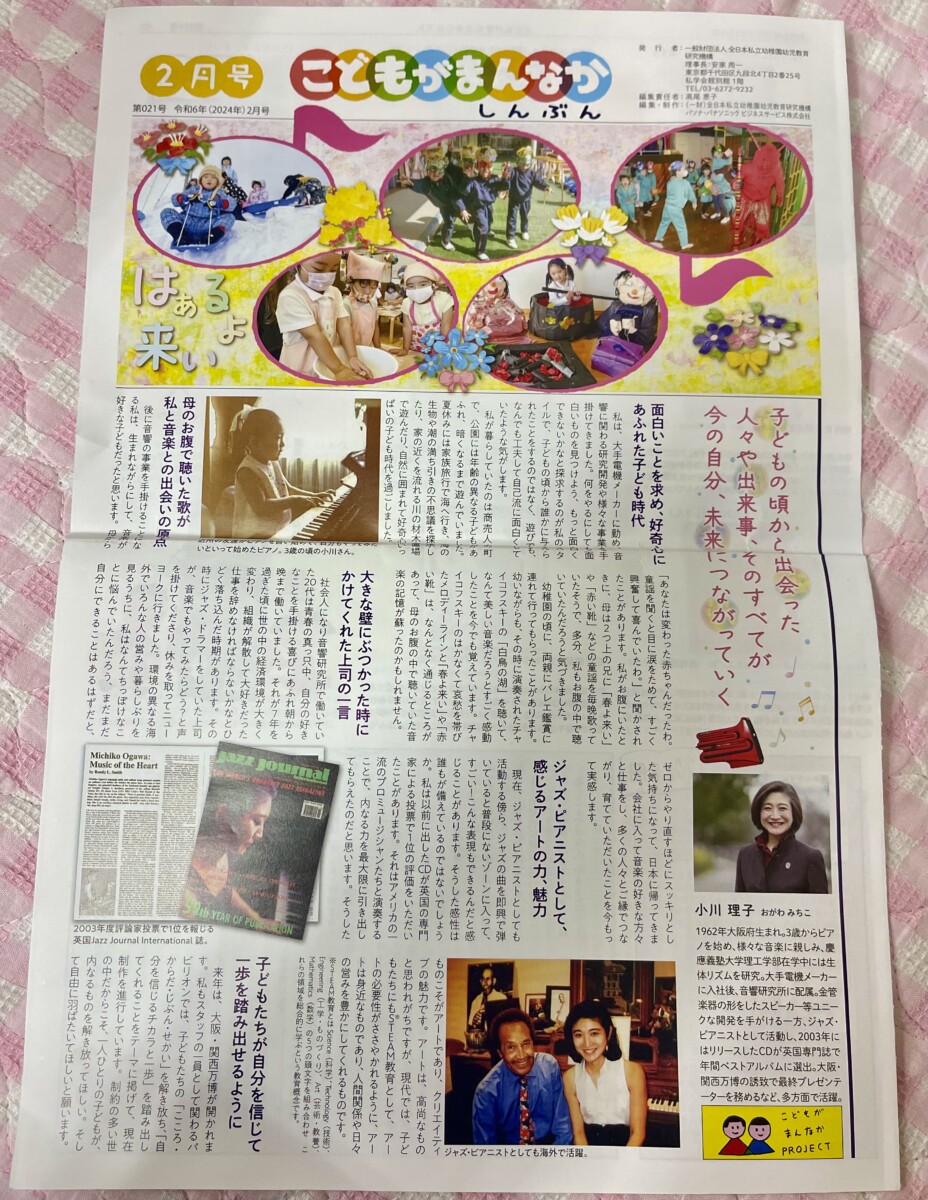 2月号
こどもがまんなか
しんぶん
第021号 令和6年(2024年)2月号
発 行 者:一般財団法人 全日本私立幼稚園幼児教育
研究機構
理事長:安家 周一
東京都千代田区九段北4丁目2番25号
私学会館別館 1階
TEL/03-6272-9232
編集責任者:高尾 恵子
編集・制作:(一財)全日本私立幼稚園幼児教育研究機構
パソナ・パナソニック ビジネスサービス株式会社
はぁるよ
来い
子どもの頃から出会った
人々や出来事、そのすべてが
今の自分、未来につながっていく
面白いことを求め、好奇心に
あふれた子ども時代
私は、大手電機メーカーに勤め、音
響に関わる研究開発や様々な事業を手
掛けてきました。何をやるにしても面
白いものを見つけよう、もっと面白く
できないかなと探求するのが私のスタ
イルで、子どもの頃から誰かに与えら
れたことをするのではなく、遊びでも
なんでも工夫して自己流に面白くして
いたような気がします。
私が暮らしていたのは商売人の町
で、公園には年齢の異なる子どもがあ
ふれ、暗くなるまで遊んでいました。
夏休みには家族旅行で海へ行き、海の
生物や潮の満ち引きの不思議を探し
たり、家の近くを流れる川の材木置場
で遊んだり、自然に囲まれて好奇心いっ
ぱいの子ども時代を過ごしました。
いといって始めたピアノ。3歳の頃の小川さん。
母のお腹で聴いた歌が
私と音楽との出会いの原点
後に音響の事業を手掛けることにな
る私は、生まれながらにして、音が大
好きな子どもだったと思います。母から
「あなたは変わった赤ちゃんだったわ。
童謡を聞くと目に涙をためて、すごく
興奮して喜んでいたわ。」と聞かされ
たことがあります。私がお腹にいたと
きに、母は2つ上の兄に「春よ来い」
や「赤い靴」などの童謡を毎晩歌って
いたそうで、多分、私もお腹の中で聴
いていたんだろうと気づきました。
幼稚園の頃に、両親にバレエ鑑賞に
連れて行ってもらったことがあります。
幼いながらも、その時に演奏されたチャ
イコフスキーの「白鳥の湖」を聴いて、
なんて美しい音楽だろうとすごく感動
したことを今でも覚えています。チャ
イコフスキーのはかなくて哀愁を帯び
たメロディーラインと「春よ来い」や「赤
い靴」は、なんとなく通じるところが
あって、母のお腹の中で聴いていた音
楽の記憶が蘇ったのかもしれません。
大きな壁にぶつかった時に
かけてくれた上司の一言
社会人になり音響研究所で働いてい
た20代は青春の真っ只中、自分の好き
なことを手掛ける喜びにあふれ朝から
晩まで働いていました。それが7年を
過ぎた頃に世の中の経済環境が大きく
変わり、組織が解散して大好きだった
仕事を辞めなければならないかなとひ
どく落ち込んだ時期があります。その
時にジャズ・ドラマーをしていた上司
が、音楽でもやってみたらどう?と声
を掛けてくださり、休みを取ってニュー
ヨークに行きました。環境の異なる海
外でいろんな人の営みや暮らしぶりを
見るうちに、私はなんてちっぽけなこ
とに悩んでいたんだろう、まだまだ
自分にできることはあるはずだと、
ゼロからやり直すほどにスッキリとし
た気持ちになって、日本に帰ってきま
した。会社に入って音楽の好きな方々
と仕事をし、多くの人々とご縁でつな
がり、育てていただいたことを今もっ
て実感します。
ジャズ・ピアニストとして、
感じるアートの力、魅力
現在、ジャズ・ピアニストとしても
活動する傍ら、ジャズの曲を即興で弾
いていると普段にないゾーンに入って、
すごい!こんな表現もできるんだと感
じることがあります。そうした感性は
誰もが備えているのではないでしょう
か。私は以前に出したCDが英国の専門
家による投票で1位の評価をいただい
たことがあります。それはアメリカの一
流のプロミュージシャンたちと演奏する
ことで、内なる力を最大限に引き出し
てもらえたのだと思います。そうした
Michiko Ogawa:
Music of the Heart
by Randy L. Smith
jazz journal
50th YEAR OF PUBLICATION
2003年度評論家投票で1位を報じる
英国Jazz Journal International 誌。
ものこそがアートであり、クリエイティ
ブの魅力です。アートは、高尚なもの
と思われがちですが、現代では、子ど
もたちにもSTEAM教育として、アー
トの必要性がささやかれるように、アー
トは身近なものであり、人間関係や日々
の営みを豊かにしてくれるものです。
※STEAM教育とは、Science(科学)、Technology(技術)、
Engineering(工学・ものづくり)、Art(芸術・教養)、
Mathematics(数学)の5つの頭文字を組み合わせ、こ
れらの領域を総合的に学ぶという教育概念です。
子どもたちが自分を信じて
一歩を踏み出せるように
来年は、大阪・関西万博が開かれま
す。私もスタッフの一員として関わるパ
ビリオンでは、子どもたちの「こころ・
からだ・じぶん・せかい」を解き放ち、「自
分を信じるチカラと一歩」を踏み出し
てくれることをテーマに掲げて、現在
制作を進行しています。制約の多い世
の中だからこそ、一人ひとりの子どもが、
内なるものを解き放ってほしい。そし
て自由に羽ばたいてほしいと願います。
ジャズ・ピアニストとしても海外で活躍。
小川 理子 おがわ みちこ
1962年大阪府生まれ。3歳からピア
ノを始め、様々な音楽に親しみ、慶
應義塾大学理工学部在学中には生
体リズムを研究。大手電機メーカー
に入社後、音響研究所に配属。金管
楽器の形をしたスピーカー等ユニー
クな開発を手がける一方、ジャズ・
ピアニストとして活動し、2003年に
はリリースしたCDが英国専門誌で
年間ベストアルバムに選出。大阪・
関西万博の誘致で最終プレゼンテー
ターを務めるなど、多方面で活躍。
こどもが
まんなか
PROJECT